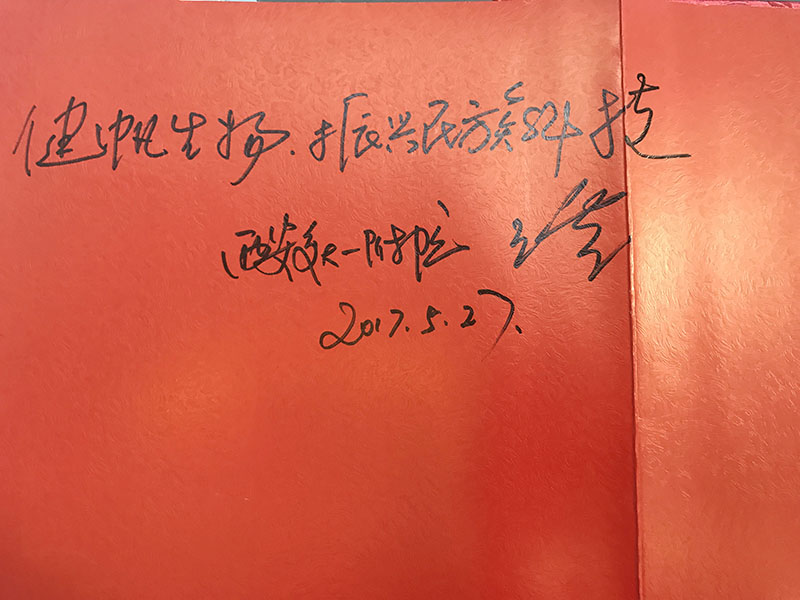 健帆生物.振兴民族科技
西安交大一附院
2017.5.27.